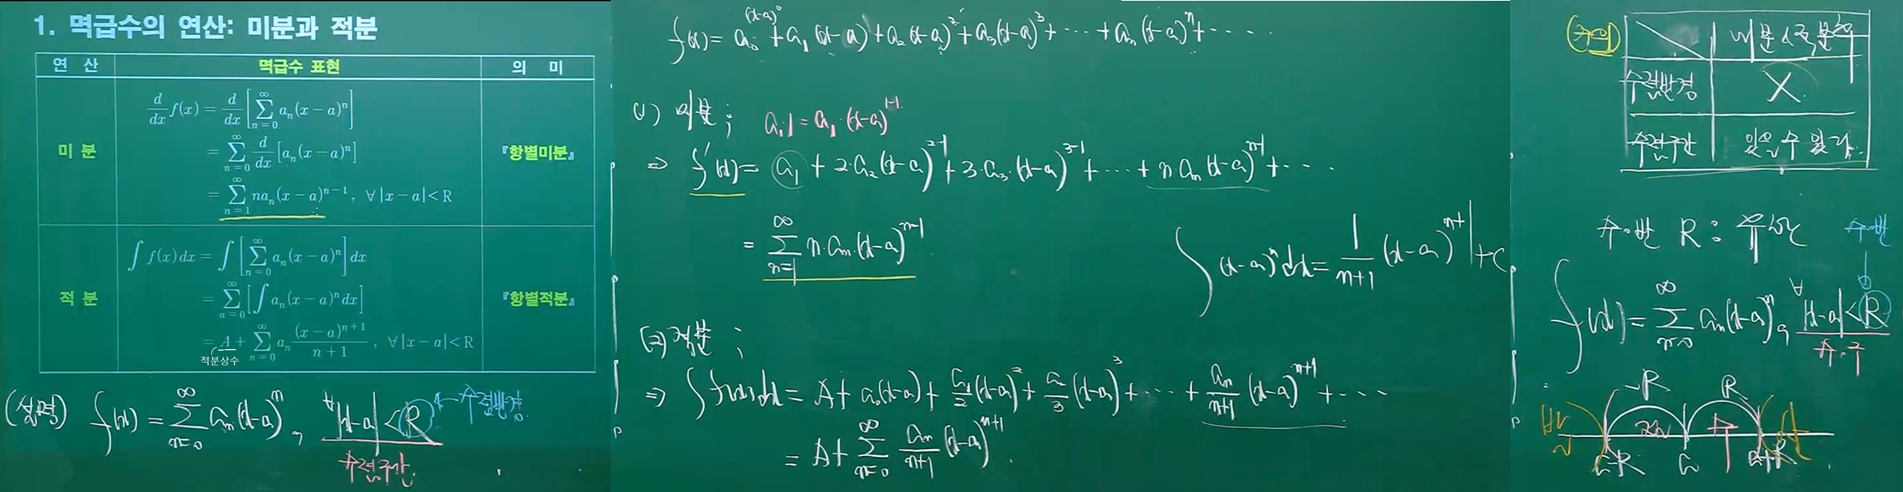 1. 멱급수의 연산: 미분과 적분
연 산 멱급수 표현 의 미
미 분
d/dx f(x) = d/dx [∑_{n=0}^{∞} a_n(x-a)^n]
= ∑_{n=0}^{∞} d/dx [a_n(x-a)^n]
= ∑_{n=1}^{∞} na_n(x-a)^{n-1}, ∀|x-a|<R
『항별미분』
적 분
∫f(x)dx = ∫[∑_{n=0}^{∞} a_n(x-a)^n]dx
= ∑_{n=0}^{∞} [∫a_n(x-a)^n dx]
= A + ∑_{n=0}^{∞} a_n (x-a)^{n+1}/(n+1), ∀|x-a|<R
적분상수
『항별적분』
(설명) f(x) = ∑_{n=0}^{∞} a_n(x-a)^n, ∀|x-a|<R ← 수렴반경
수렴구간
(x-a)^0
f(x) = a_0 + a_1(x-a) + a_2(x-a)^2 + a_3(x-a)^3 + ⋯ + a_n(x-a)^n + ⋯
(1) 미분; a_1·1 = a_1·(x-a)^{1-1}
⇒ f'(x) = a_1 + 2·a_2(x-a)^{2-1} + 3·a_3·(x-a)^{3-1} + ⋯ + n·a_n(x-a)^{n-1} + ⋯
= ∑_{n=1}^{∞} n·a_n·(x-a)^{n-1}
∫(x-a)^n dx = 1/(n+1) (x-a)^{n+1} + C
(2) 적분;
⇒ ∫f(x)dx = A + a_0(x-a) + a_1/2 (x-a)^2 + a_2/3 (x-a)^3 + ⋯ + a_n/(n+1) (x-a)^{n+1} + ⋯
= A + ∑_{n=0}^{∞} a_n/(n+1) (x-a)^{n+1}
주의
수렴반경 X
수렴구간 있을 수 있다.
수·반 R: 수·반
f(x) = ∑_{n=0}^{∞} a_n(x-a)^n, ∀|x-a|<R
수·구
-R R
a-R a a+R